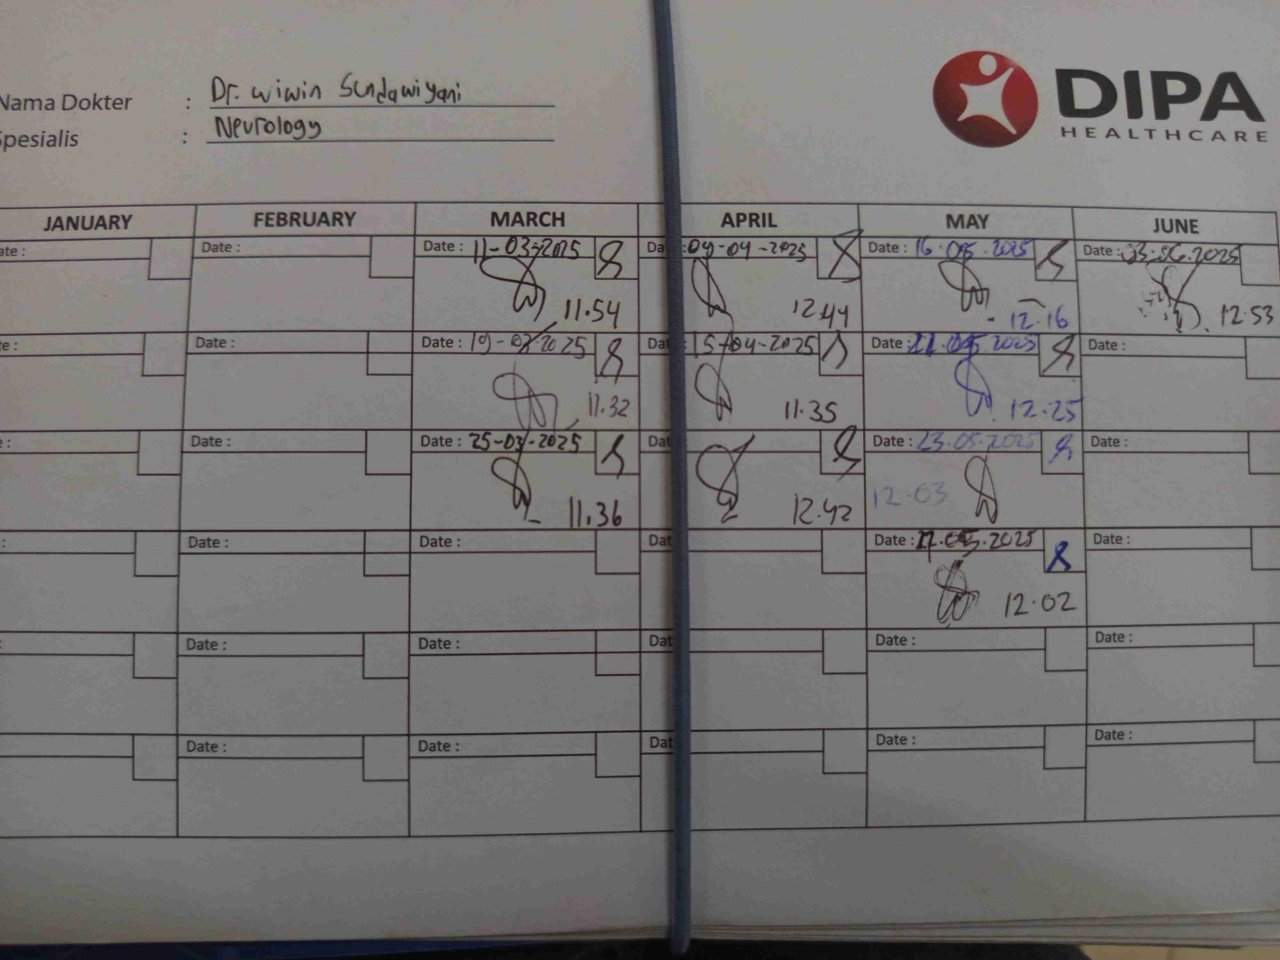 Nama Dokter : Dr. wiwin Sundawiyani
Spesialis : Neurology
DIPA
HEALTHCARE
JANUARY FEBRUARY MARCH APRIL MAY JUNE
Date : Date : 11-03-2025 09-04-2025 Date : 16.05.2025 Date : 03.06.2025
11.54 12.44 12.16 12.53
Date : Date : 19-03-2025 15-04-2025 Date : 05 2025 Date :
11.32 11.35 12.25
Date : Date : 25-03-2025 Date : 23.05.2025 Date :
11.36 12.42 12.03
Date : Date : Date : .05.2025 Date :
12.02
Date : Date : Date : Date :
Date : Date : Date : Date :